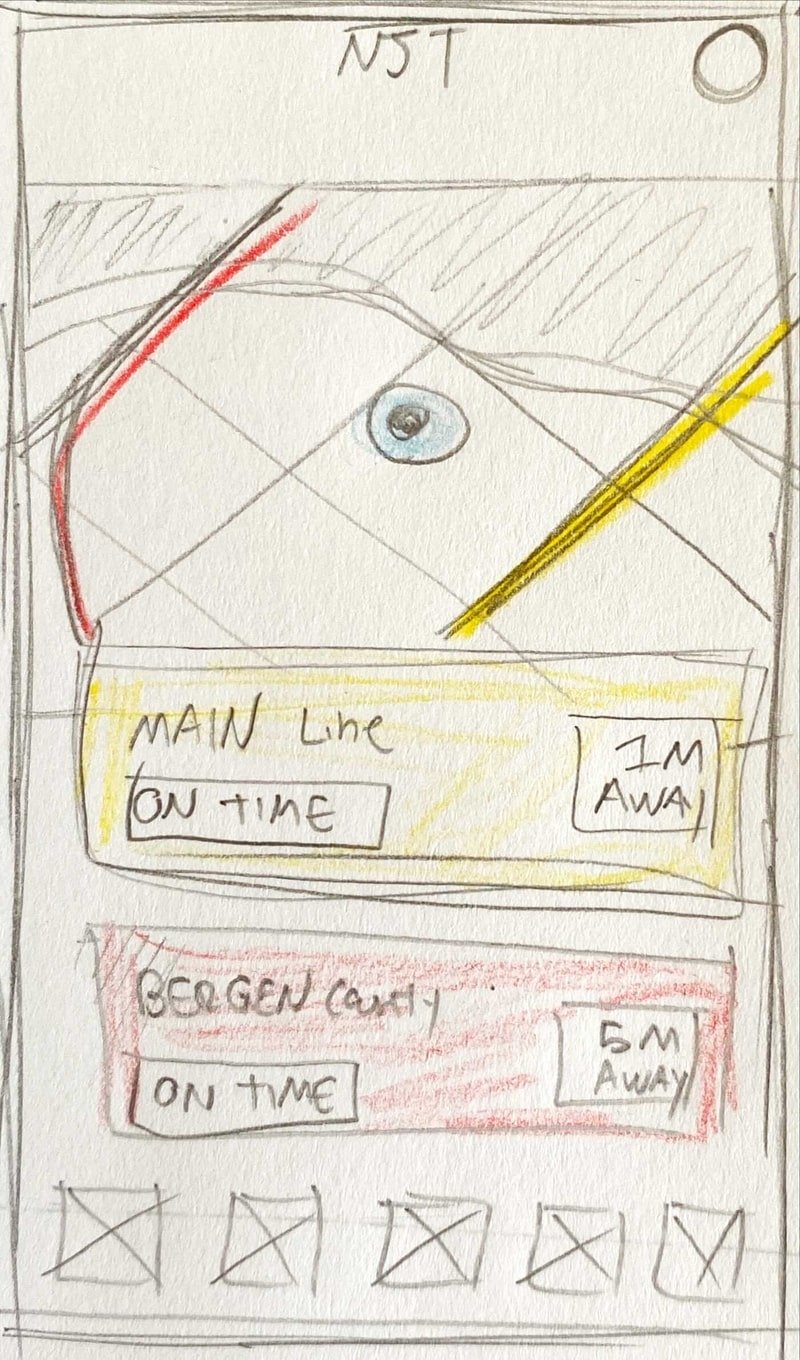 NJT
MAIN Line
ON TIME
1M
AWAY
BERGEN County
ON TIME
5M
AWAY